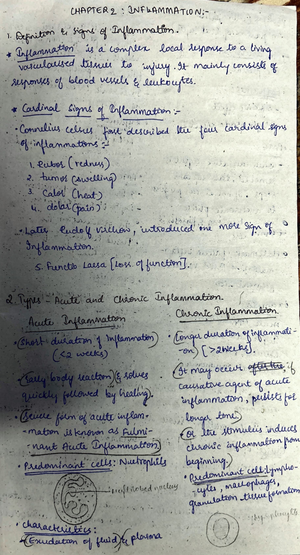 CHAPTER 2 : INFLAMMATION:-
1. Definition & Signs of Inflammation.
* Inflammation is a complex local response to a living
vascularised tissues to injury. It mainly consists of
responses of blood vessels & leukocytes.
* Cardinal Signs of Inflammation:-
• Cornelius celsus first described the four cardinal signs
of inflammations:-
1. rubor (redness)
2. tumor (swelling)
3. Calor (heat)
4. dolor (pain)
• Later Rudolf virchow, introduced one more sign of
Inflammation.
5. Functio Laesa [Loss of function].
2. Types - Acute and Chronic Inflammation.
Acute Inflammation
• Short duration of inflammation
(<2 weeks)
• Early body reaction & solves
quickly followed by healing.
• Severe form of acute inflam-
mation is known as Fulmi-
nant Acute Inflammation
• Predominant cells: Neutrophils
• Characteristics:
• Exudation of fluid & plasma
Chronic Inflammation
• Longer duration of inflammati-
on) [>2 weeks].
• It may occur if
causative agent of acute
inflammation, persists for
longer time.
• Or the stimulus induces
chronic inflammation from
beginning.
• Predominant cells: Lympho-
cytes, macrophages,
granulation tissue formation